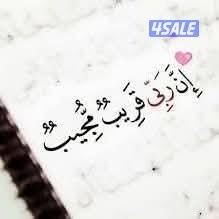 4SALE
إِنَّ رَبِّي قَرِيبٌ مُّجِيبٌ